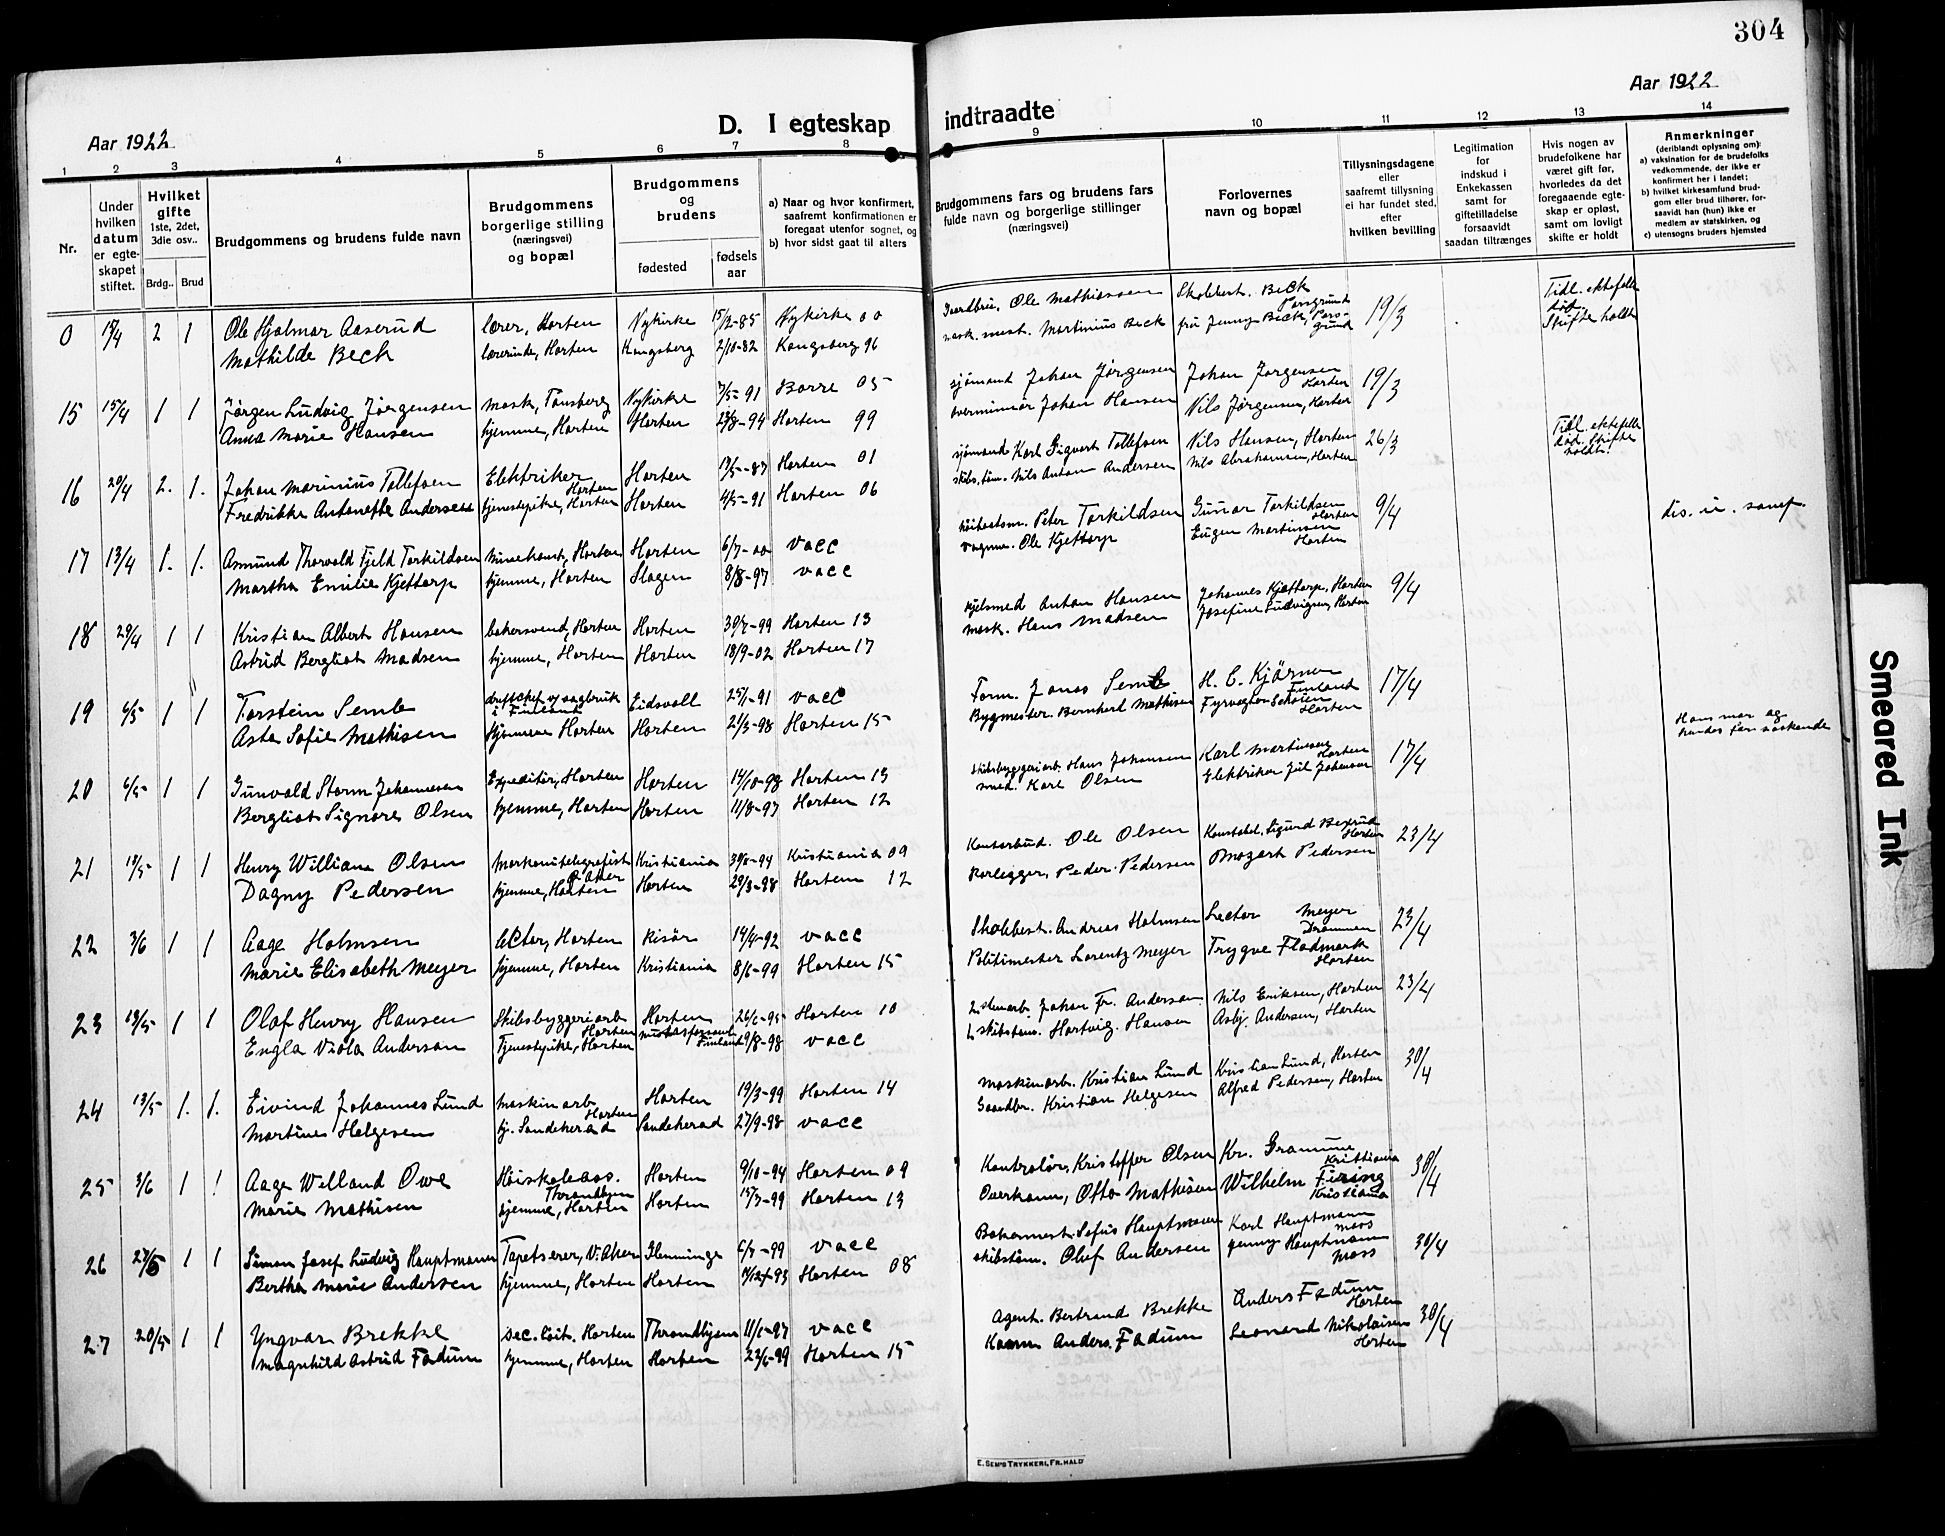 304
Aar 1922
Aar 1922
D. I egteskap indtraadte
1 2 3 4 5 6 7 8 9 10 11 12 13 14
Nr.
Under hvilken datum er egte-skapet stiftet.
Hvilket gifte 1ste, 2det, 3die osv..
Brdg.. Brud
Brudgommens og brudens fulde navn
Brudgommens borgerlige stilling (næringsvei) og bopæl
Brudgommens og brudens
fødested
fødsels aar
a) Naar og hvor konfirmert, saafremt konfirmationen er foregaat utenfor sognet, og
b) hvor sidst gaat til alters
Brudgommens fars og brudens fars fulde navn og borgerlige stillinger (næringsvei)
Forlovernes navn og bopæl
Tillysningsdagene eller saafremt tillysning ei har fundet sted, efter hvilken bevilling
Legitimation for indskud i Enkekassen samt for giftetilladelse forsaavidt saadan tiltrænges
Hvis nogen av brudefolkene har været gift før, hvorledes da det foregaaende egte-skap er opløst, samt om lovligt skifte er holdt
Anmerkninger (deriblandt oplysning om): a) vaksination for de brudefolks vedkommende, der ikke er konfirmert her i landet; b) hvilket kirkesamfund brud-gom eller brud tilhører, for-saavidt han (hun) ikke er medlem av statskirken, og c) utensogns bruders hjemsted
0 2 1 Ole Hjalmar Aaserud lærer, Horten Nykirke 15/12-85 Nykirke 00 Ole Mathiassen Skolebest. Beck Porsgrund 19/3 Tidl. ektefelle død Skifte holdt
Mathilde Beck lærerinde, Horten Kongsberg 2/10-82 Kongsberg 96 mask. mest. Martinius Beck fru Jenny Beck, Pors-grund
15 15/4 1 1 Jørgen Ludvig Jørgensen mask, Tønsberg Nykirke 7/5-91 Borre 05 sjømand Johan Jørgensen Johan Jørgensen Horten 19/3
Anna Marie Hansen hjemme, Horten Horten 23/8-94 Horten 99 overminør Johan Hansen Nils Jørgensen, Horten
16 20/4 2. 1. Johan Marinius Tollefsen Elektriker Horten Horten 17/5-87 Horten 01 sjømand Karl Sigvart Tollefsen Nils Hansen, Horten 26/3 Tidl. ektefelle død. Skifte holdt.
Fredrikke Antonette Andersen tjenestepike, Horten Horten 4/5-91 Horten 06 skibstøm. Nils Anton Andersen Nils Abrahamsen, Horten
17 13/4 1. 1. Asmund Thorvald Fjeld Torkildsen Horten Horten 6/7-00 vacc Peter Torkildsen Gunnar Torkildsen Horten 9/4 dis. u. samf.
Martha Emilie Kjettorp hjemme, Horten Slagen 8/8-97 vacc Ole Kjettorp Eugen Martinsen Horten
18 29/4 1 1 Kristian Albert Hansen bakersvend, Horten Horten 30/7-99 Horten 13 kjelsmed Anton Hansen Johannes Kjettorp, Horten 9/4
Astrid Bergliot Madsen hjemme, Horten Horten 18/9-02 Horten 17 mask. Hans Madsen Josefine Ludvigsen, Horten
19 6/5 1 1 Torstein Semb driftschef v/ sagbruk i Finland Eidsvoll 25/1-91 vacc Form. Jonas Semb H. E. Kjörner Finland 17/4
Asta Sofie Mathisen hjemme Horten Horten 21/3-98 Horten 15 Bygmester Bernhard Mathisen Fyrvogter Schøien Horten
20 6/5 1 1 Gunvald Storm Johannesen Expeditør, Horten Horten 14/10-98 Horten 13 Skibsbyggeriarb. Hans Johansen Karl Martinsen Horten 17/4 Hans mor og hendes far søskende
Bergliot Signora Olsen hjemme, Horten Horten 11/8-97 Horten 12 smed. Karl Olsen Elektriker Jul Johansen
21 18/5 1 1 Henry William Olsen Markonitelegrafist Ø. Aker Kristiania 30/1-94 Kristiania 09 Kontorbud. Ole Olsen Konstabel. Sigurd Bexrud Horten 23/4
Dagny Pedersen hjemme, Horten Horten 29/3-98 Horten 12 Rørlegger, Peder Pedersen Mozart Pedersen
22 3/6 1 1 Aage Holmsen lektor, Horten Risör 14/4-92 vacc Skolebest. Andreas Holmsen Lector Meyer Drammen 23/4
Marie Elisabeth Meyer hjemme, Horten Kristiania 8/6-99 Horten 15 Politimester Lorentz Meyer Trygve Flodmark Horten
23 13/5 1 1 Olaf Henry Hansen Skibsbyggeriarb Horten Horten 26/6-95 Horten 10 Johan Fr. Anderson Nils Eriksen, Horten 23/4
Engla Viola Anderson Tjenestepike, Horten Finland 9/8-98 vacc skibstøm. Hartvig Hansen Asbj. Andersen, Horten
24 13/5 1. 1. Eivind Johannes Lund Maskinarb Horten Horten 19/3-99 Horten 14 Maskinarb. Kristian Lund Kristian Lund, Horten 30/4
Martine Helgesen hj. Sandeherad Sandeherad 27/9-98 vacc Gaardbr. Kristian Helgesen Alfred Pedersen, Horten
25 3/6 1 1 Aage Welland Owe Høiskoleass. Throndhjem Horten 9/10-94 Horten 09 Kontrolør, Kristoffer Olsen Kr. Gramme Kristiania 30/4
Marie Mathisen hjemme, Horten Horten 15/7-99 Horten 13 Overkann, Otto Mathisen Wilhelm Firing Kristiania
26 27/5 1 1 Simon Josef Ludvig Hauptmann Tapetserer, V. Aker Flenninge 6/8-99 vacc Bakermest. Sofus Hauptmann Karl Hauptmann Moss 30/4
Bertha Marie Andersen hjemme, Horten Horten 93 Horten 08 skibstøm. Oluf Andersen Jenny Hauptmann Moss
27 20/5 1 1 Yngvar Brekke sec. löit. Horten Throndhjem 11/1-97 vacc Agent. Bertrand Brekke Anders Fadum Horten 30/4
Magnhild Astrid Fadum hjemme, Horten Horten 23/6-99 Horten 15 Kaom Anders. Fadum Leonard Nikolaisen Horten
E. SEM'S TRYKKERI, FR.HALD
Smeared Ink